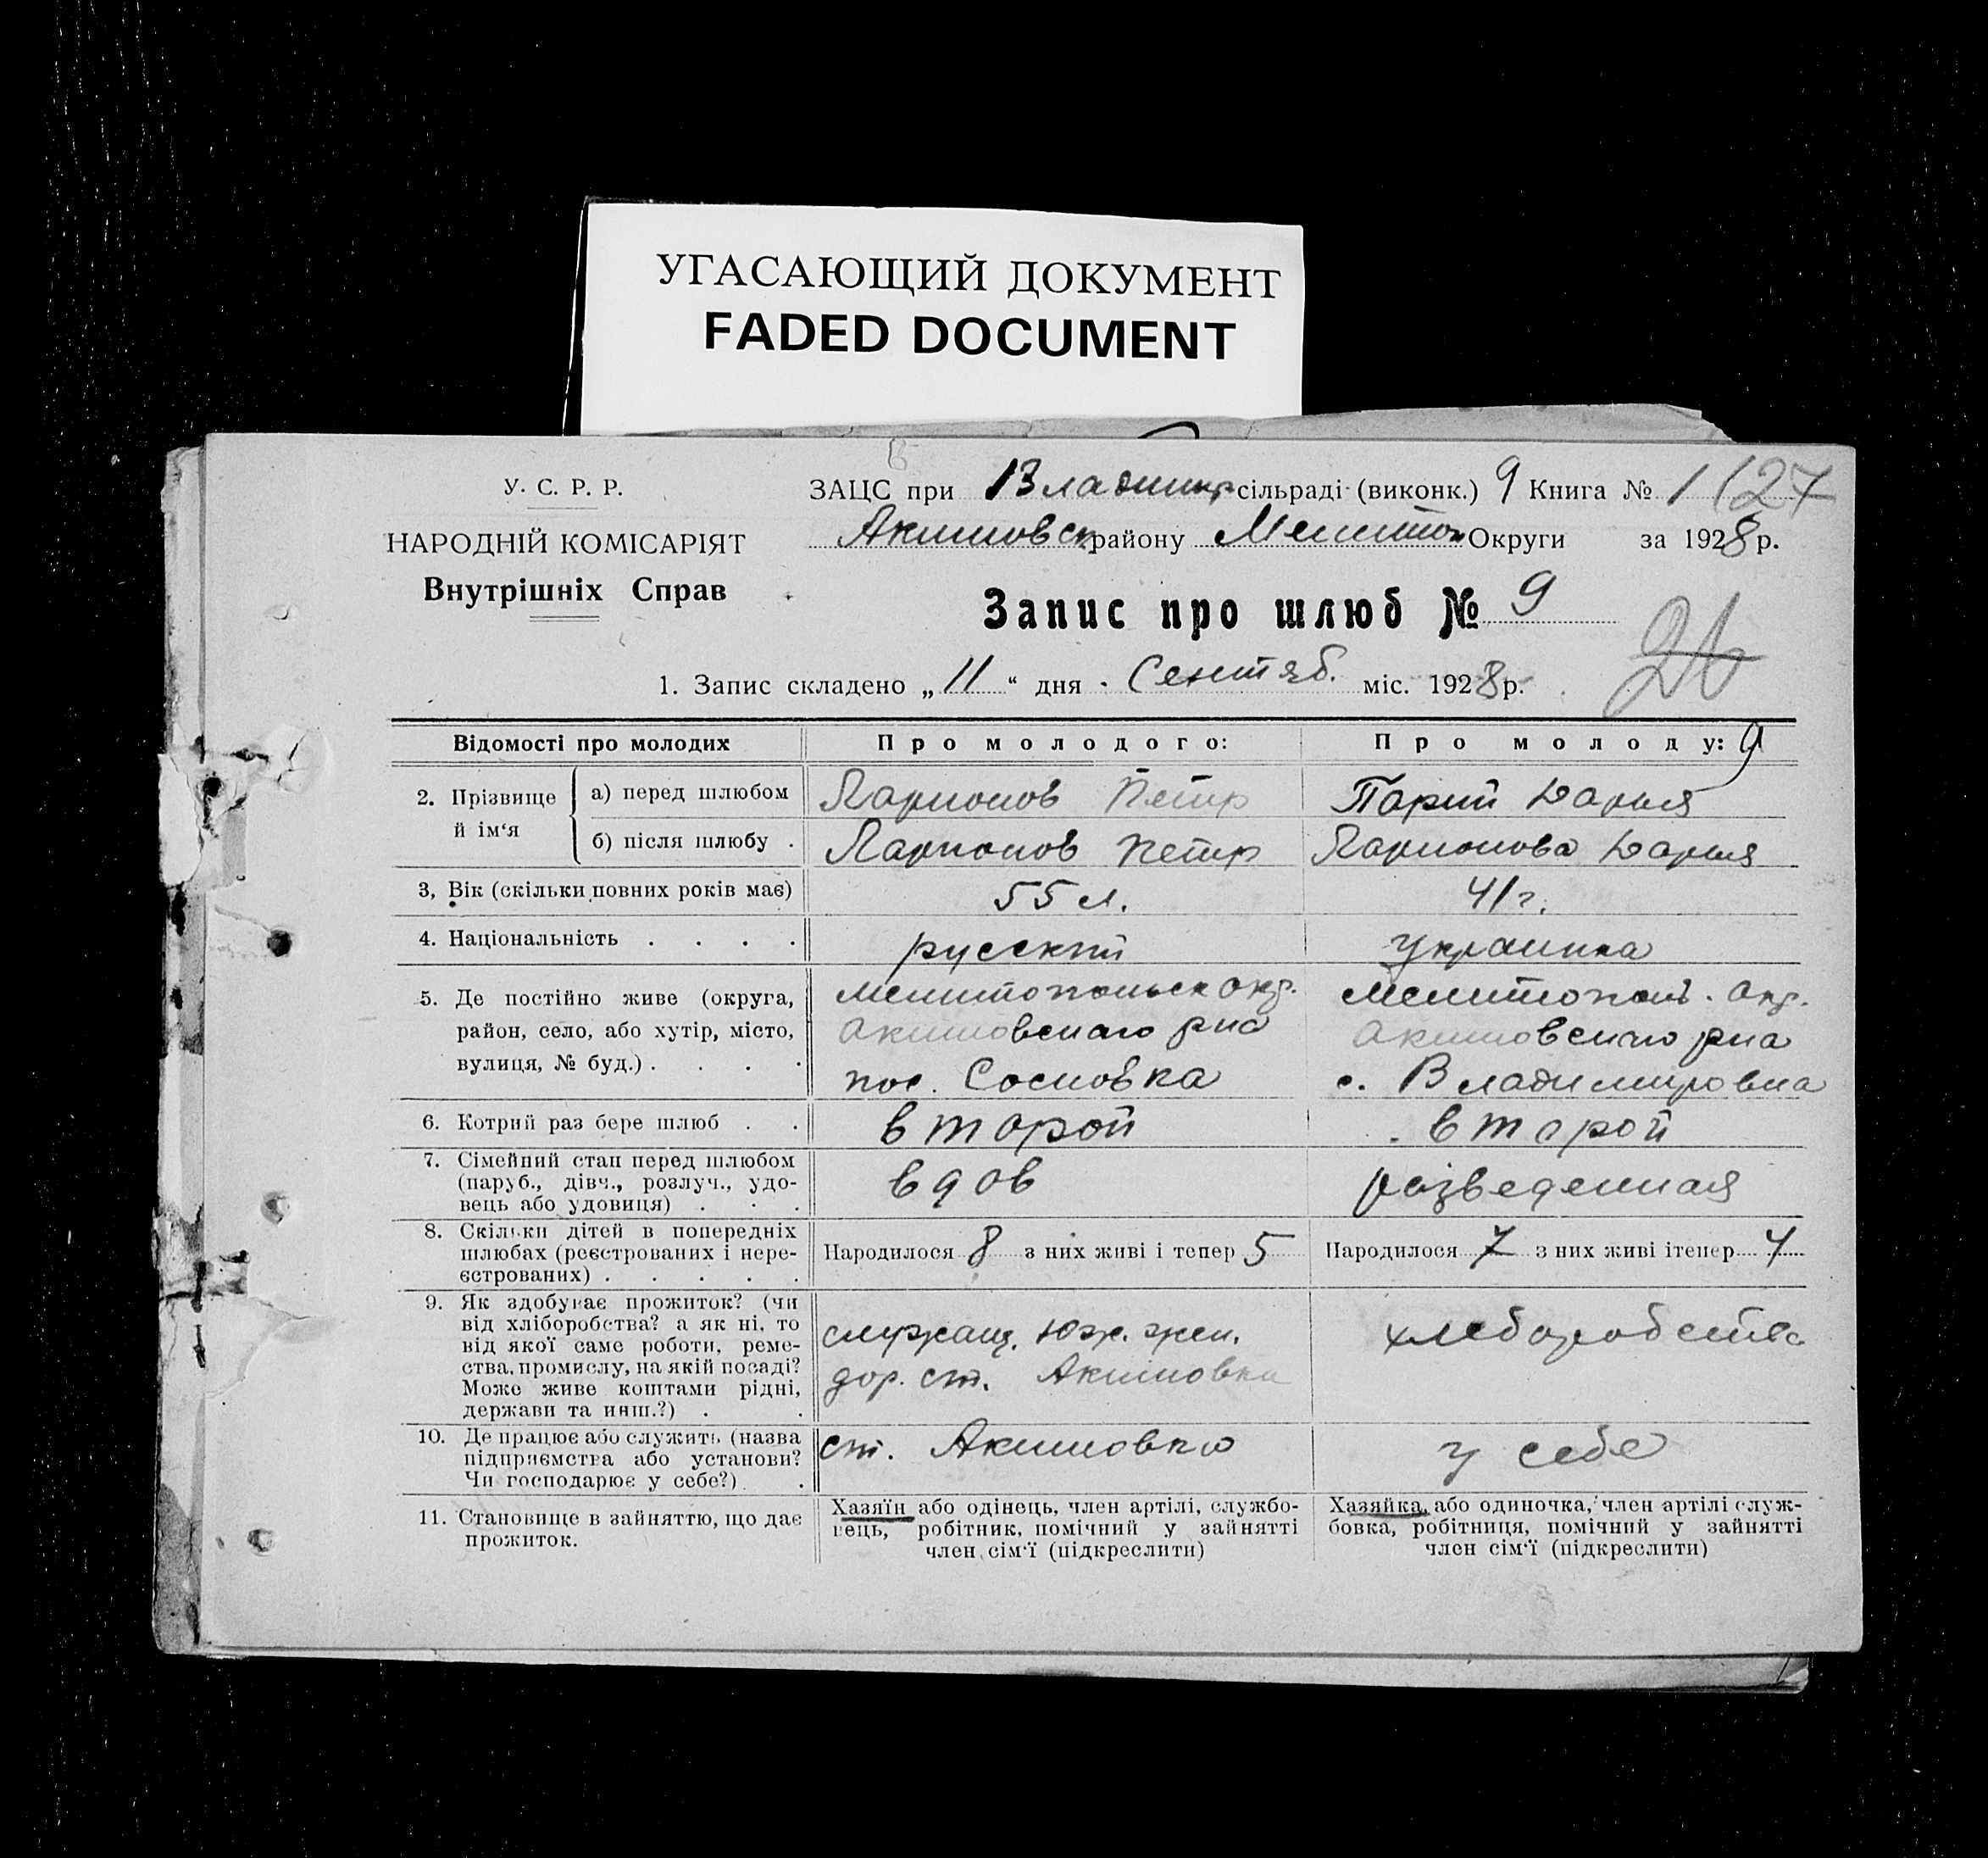 УГАСАЮЩИЙ ДОКУМЕНТ
FADED DOCUMENT
У. С. Р. Р.
НАРОДНІЙ КОМІСАРІЯТ
Внутрішніх Справ
ЗАЦС при Владимир сільраді (виконк.) 9 Книга № 1 127
Акимовск району Мелитоп Округи за 1928 р.
Запис про шлюб № 9
26
1. Запис складено „11“ дня Сентяб. міс. 1928 р.
Відомості про молодих Про молодого: Про молоду: 9
2. Прізвище й ім‘я а) перед шлюбом Ларионов Петр Парий Дарья
б) після шлюбу . Ларионов Петр Ларионова Дарья
3, Вік (скільки повних років має) 55 л. 41 г.
4. Національність . . . . русский украинка
5. Де постійно живе (округа, район, село, або хутір, місто, вулиця, № буд.) . . . .
Мелитопольск окр. Мелитопол. окр.
Акимовскаго р-на Акимовского р-на
пос. Сосновка с. Владимировка
6. Котрий раз бере шлюб . . второй второй
7. Сімейний стан перед шлюбом (паруб., дівч., розлуч., удовець або удовиця) . . . вдов разведенная
8. Скільки дітей в попередніх шлюбах (реєстрованих і нереєстрованих) . . . . .
Народилося 8 з них живі і тепер 5 Народилося 7 з них живі ітепер 4
9. Як здобуває прожиток? (чи від хліборобства? а як ні, то від якої саме роботи, ремества, промислу, на якій посаді? Може живе коштами рідні, держави та инш.?) . .
служащ. Юж. жел. хлеборобство
дор. ст. Акимовка
10. Де працює або служить (назва підприємства або установи? Чи господарює у себе?) .
ст. Акимовка у себе
11. Становище в зайняттю, що дає прожиток.
Хазяїн або одінець, член артілі, службо- Хазяйка, або одиночка, член артілі служ-
вець, робітник, помічний у зайнятті бовка, робітниця, помічний у зайнятті
член сім‘ї (підкреслити) член сім‘ї (підкреслити)